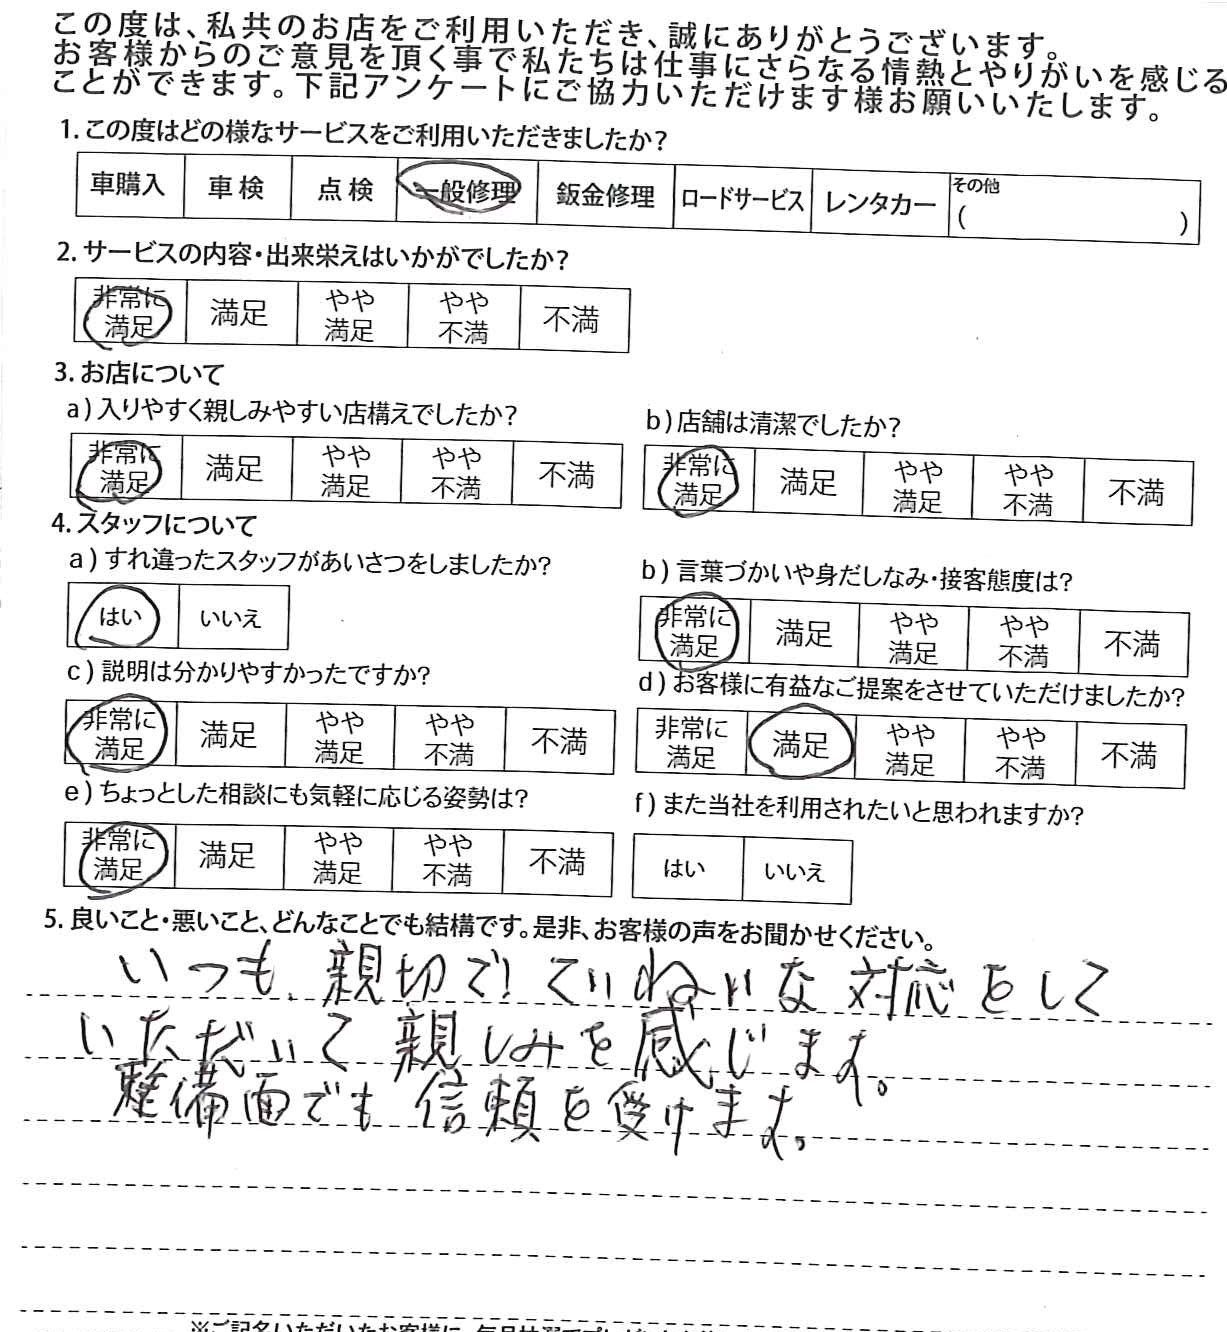 この度は、私共のお店をご利用いただき、誠にありがとうございます。
お客様からのご意見を頂く事で私たちは仕事にさらなる情熱とやりがいを感じる
ことができます。下記アンケートにご協力いただけます様お願いいたします。
1. この度はどの様なサービスをご利用いただきましたか?
車購入 車検 点検 一般修理 鈑金修理 ロードサービス レンタカー その他 ( )
2. サービスの内容・出来栄えはいかがでしたか?
非常に満足 満足 やや満足 やや不満 不満
3. お店について
a) 入りやすく親しみやすい店構えでしたか?
非常に満足 満足 やや満足 やや不満 不満
b) 店舗は清潔でしたか?
非常に満足 満足 やや満足 やや不満 不満
4. スタッフについて
a) すれ違ったスタッフがあいさつをしましたか?
はい いいえ
b) 言葉づかいや身だしなみ・接客態度は?
非常に満足 満足 やや満足 やや不満 不満
c) 説明は分かりやすかったですか?
非常に満足 満足 やや満足 やや不満 不満
d) お客様に有益なご提案をさせていただけましたか?
非常に満足 満足 やや満足 やや不満 不満
e) ちょっとした相談にも気軽に応じる姿勢は?
非常に満足 満足 やや満足 やや不満 不満
f) また当社を利用されたいと思われますか?
はい いいえ
5. 良いこと・悪いこと、どんなことでも結構です。是非、お客様の声をお聞かせください。
いつも、親切で!ていねいな対応をして
いただいて親しみを感じます。
整備面でも信頼を受けます。
※ご記名いただいたお客様に、毎月抽選で